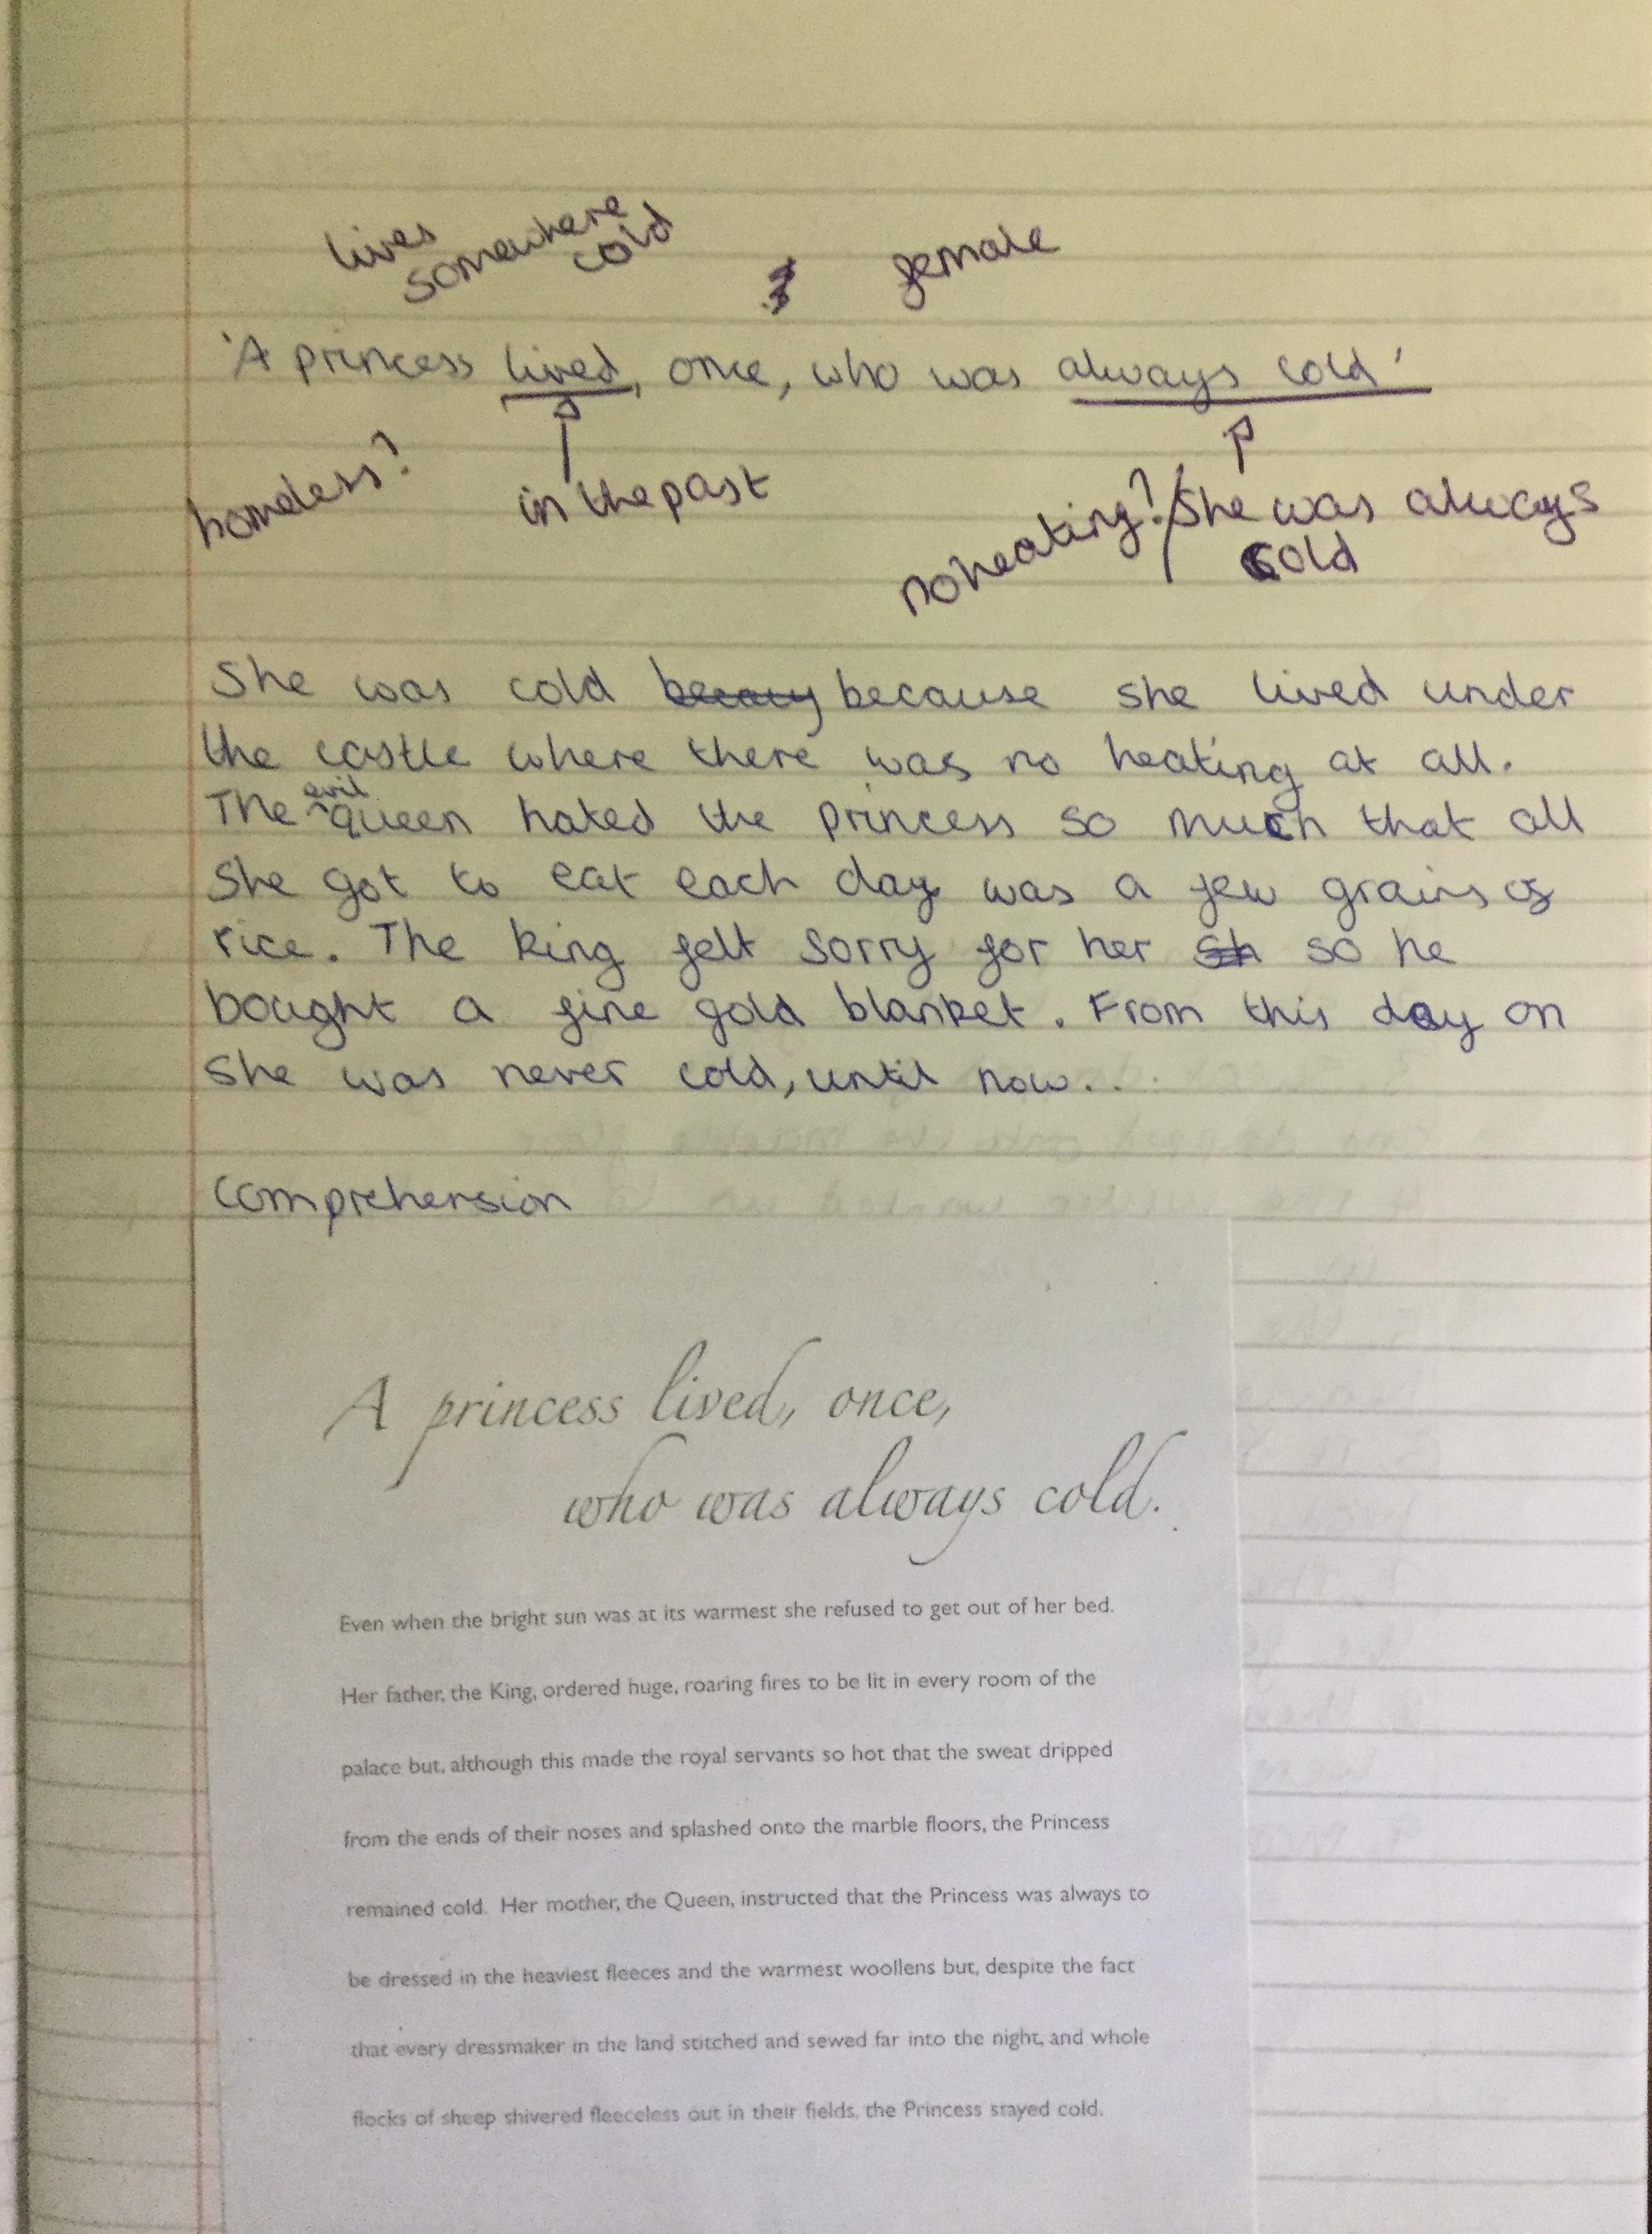 lives
somewhere
cold
female
'A princess lived, once, who was always cold'
homeless?
in the past
no heating? / She was always
cold
She was cold because she lived under
the castle where there was no heating at all.
The evil queen hated the princess so much that all
she got to eat each day was a few grains of
rice. The king felt sorry for her so he
bought a fine gold blanket. From this day on
she was never cold, until now...
comprehension
A princess lived, once,
who was always cold.
Even when the bright sun was at its warmest she refused to get out of her bed.
Her father, the King, ordered huge, roaring fires to be lit in every room of the
palace but, although this made the royal servants so hot that the sweat dripped
from the ends of their noses and splashed onto the marble floors, the Princess
remained cold. Her mother, the Queen, instructed that the Princess was always to
be dressed in the heaviest fleeces and the warmest woollens but, despite the fact
that every dressmaker in the land stitched and sewed far into the night, and whole
flocks of sheep shivered fleeceless out in their fields, the Princess stayed cold.